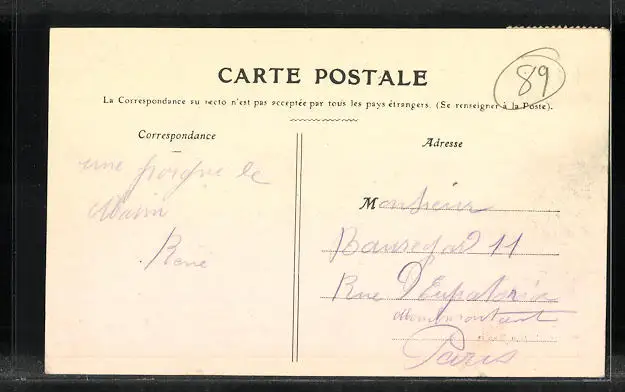 89
CARTE POSTALE
La Correspondance au recto n'est pas acceptée par tous les pays étrangers. (Se renseigner à la Poste).
Correspondance
Adresse
une de
René
Monsieur
11
Rue D'Eupatoria
Menilmontant
Paris